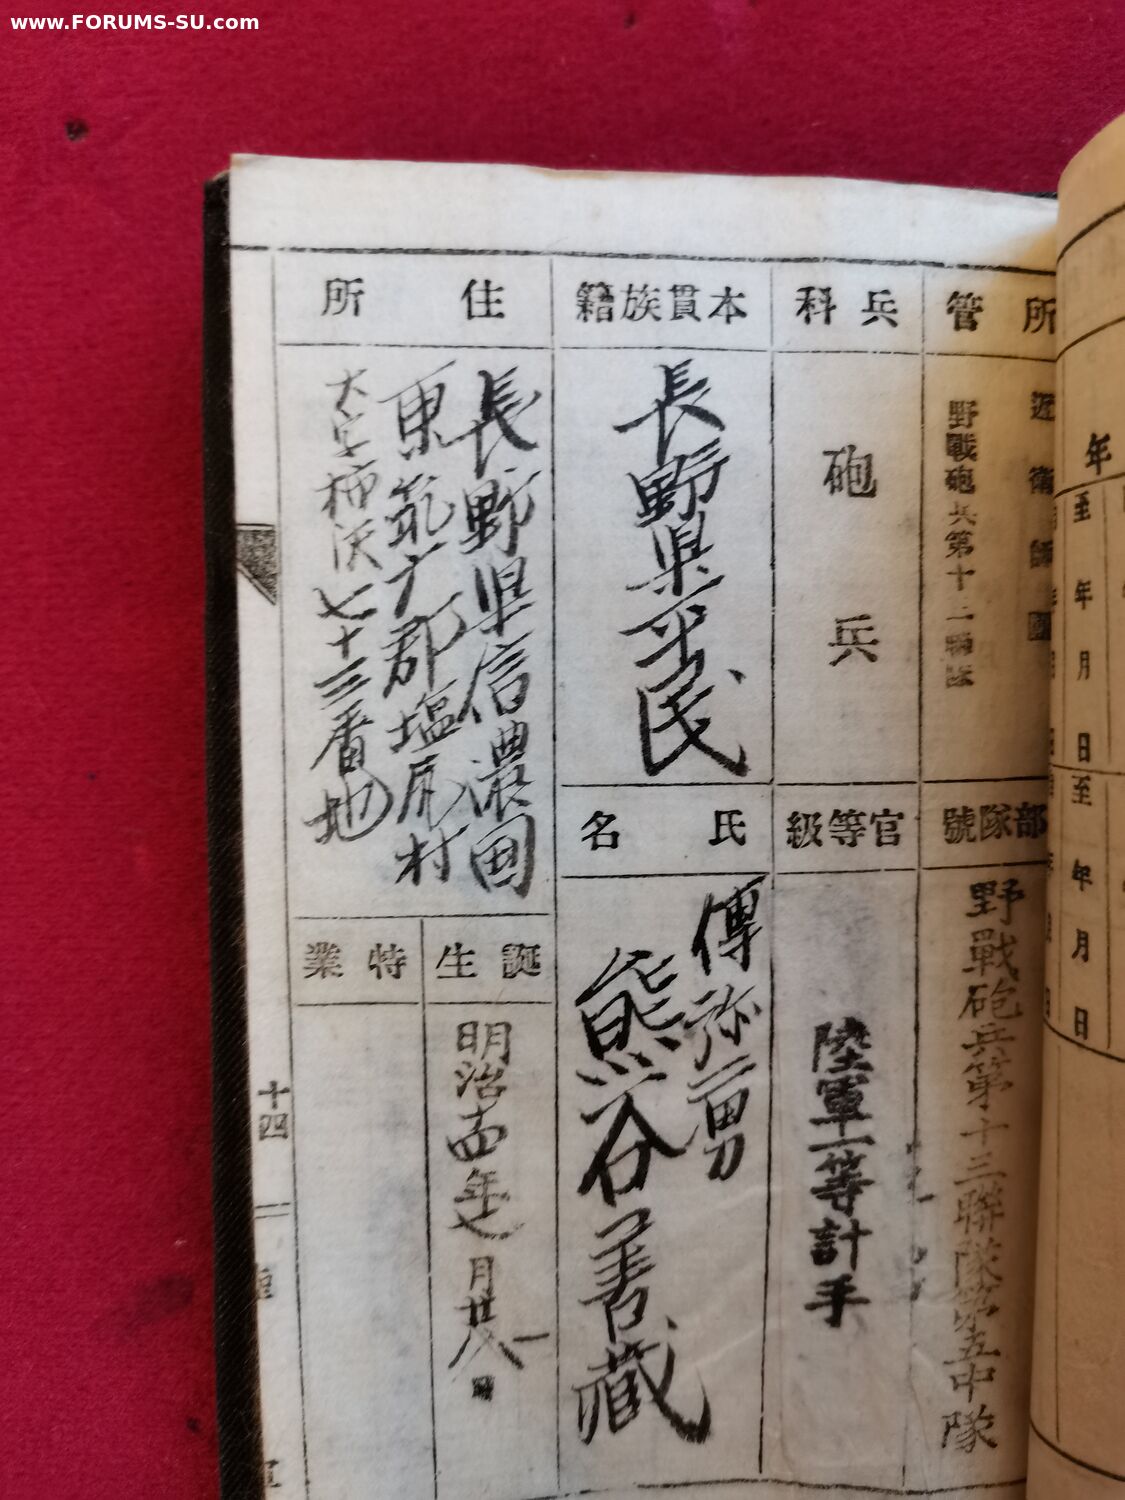 www.FORUMS-SU.com
所管
近衛師團
野戰砲兵第十三聯隊
部隊號
野戰砲兵第十三聯隊第五中隊
兵科
砲兵
官等級
陸軍一等計手
本貫族籍
長野県平民
氏名
傳弥二男
熊谷善藏
住所
長野県信濃国
東筑广郡塩尻村
大字柿沢七十三番地
誕生
明治
年七月廿八日
特業
十四
年
至年月日
至年月日